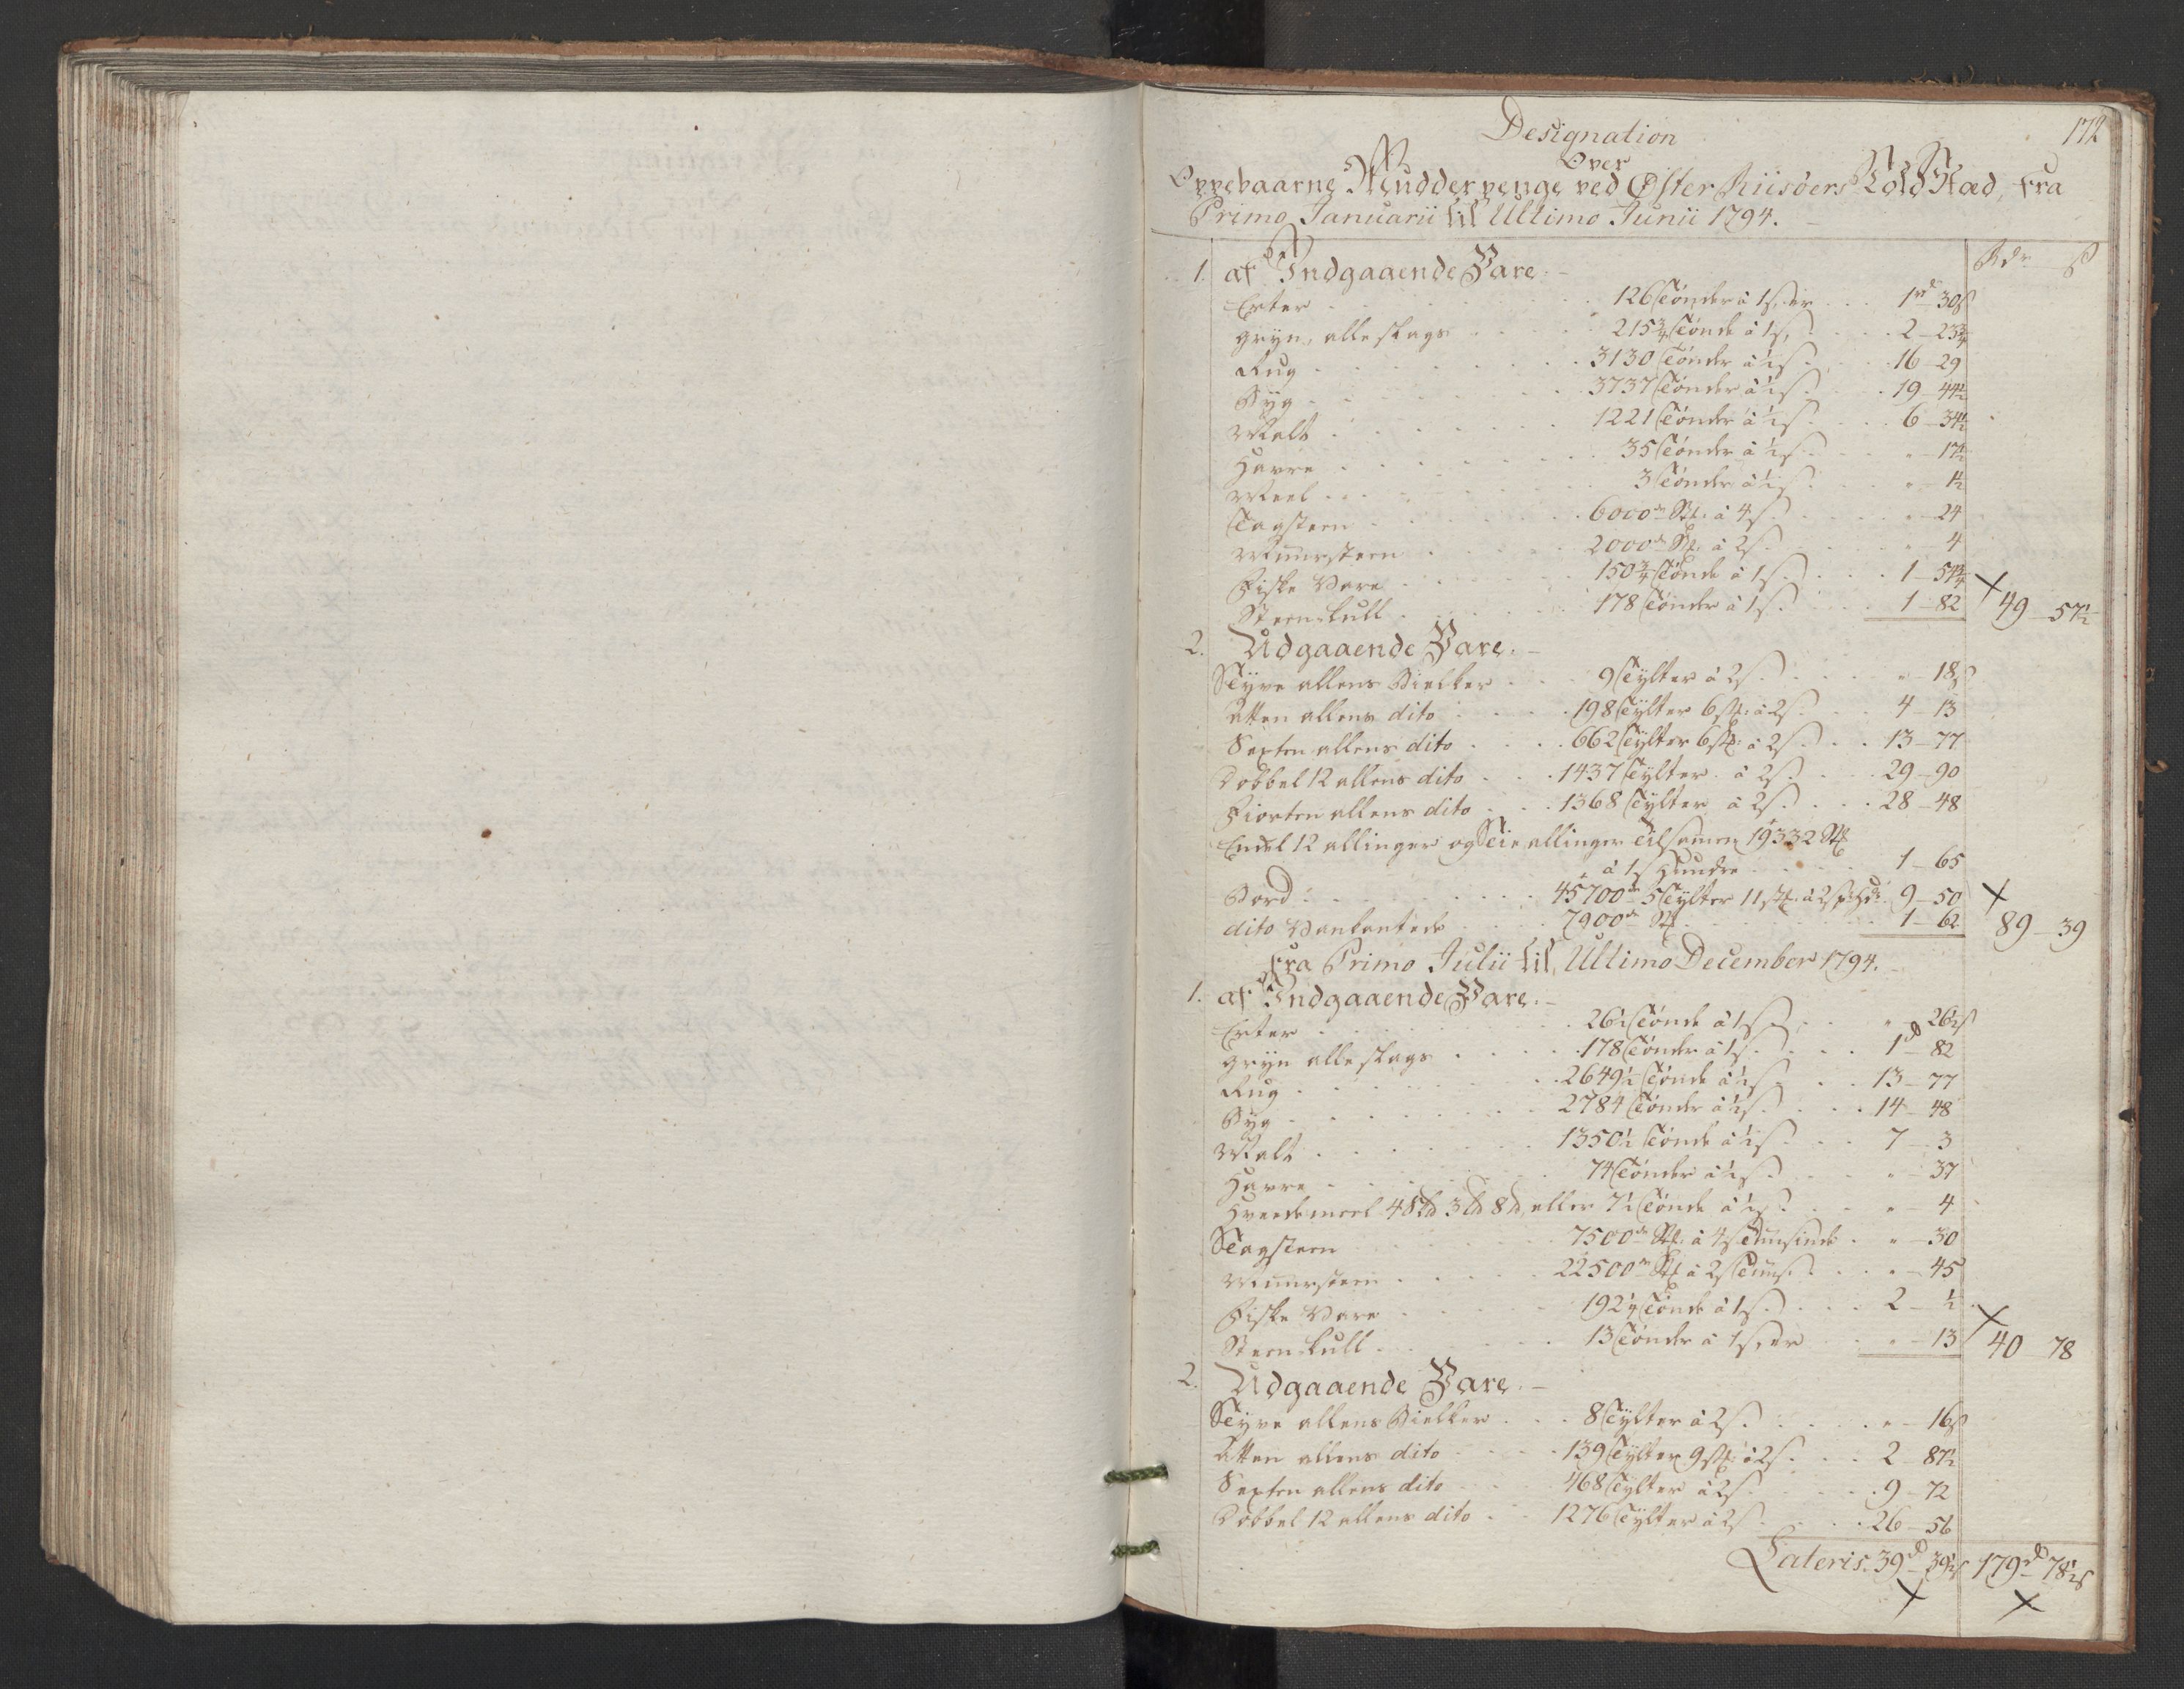 172
Designation
Over
Oppebaarne Mudderpenge ved Øster Riisøers Told Stæd, fra
Primo Januarii til Ultimo Junii 1794.
Rdr ß
1. af Indgaaende Vare.
Erter . . . 126 Tønder à 1 ß, er . . . 1rd 30ß
Gryn, alle slags . . . 215¾ Tønde à 1ß, . . . 2 - 23¾
Rug . . . 3130 Tønder à ½ß . . . 16 - 29
Byg . . . 3737 Tønder à ½ß . . . 19 - 44½
Malt . . . 1221 Tønder à ½ß . . . 6 - 34½
Havre . . . 35 Tønder à ½ß . . . " - 17½
Meel . . . 3 Tønder à ½ß . . . " - 1½
Tagsteen . . . 6000de Stk: à 4ß . . . " - 24
Muursteen . . . 2000de Stk: à 2ß . . . " - 4
Fiske Vare . . . 150¾ Tønde à 1ß . . . 1 - 54¾
Steenkull . . . 178 Tønder à 1ß . . . 1 - 82 49 - 57½
2. Udgaaende Vare.
Tyve allens Bielker . . . 9 Tylter à 2ß . . . " - 18ß
Atten allens dito . . . 198 Tylter 6 stk: à 2ß . . . 4 - 13
Sexten allens dito . . . 662 Tylter 6 stk: à 2ß . . . 13 - 77
Dobbel 12 allens dito . . . 1437 Tylter à 2ß . . . 29 - 90
Fiorten allens dito . . . 1368 Tylter à 2ß . . . 28 - 48
Enkel 12 allinger og Tie allinger tilsamen 19332 Stk
à 1ß Hundre . . . 1 - 65
Bord . . . 45700de 5 Tylter 11 stk: à 2ß pr Hdr. 9 - 50
dito Vankantede . . . 7900de Stk . . . 1 - 62 89 - 39
Fra Primo Julii til Ultimo December 1794.
1. af Indgaaende Vare.
Erter . . . 26½ Tønde à 1ß . . . " - 26½ß
Gryn alle slags . . . 178 Tønder à 1ß . . . 1d - 82
Rug . . . 2649½ Tønde à ½ß . . . 13 - 77
Byg . . . 2784 Tønder à ½ß . . . 14 - 48
Malt . . . 1350½ Tønde à ½ß . . . 7 - 3
Havre . . . 74 Tønder à ½ß . . . " - 37
Hvedemeel 4 S℔ 3 L℔ 8 ℔, eller 7½ Tønde à ½ß . . . " - 4
Tagsteen . . . 7500de Stk: à 4ß Tuusinde . . " - 30
Muursteen . . . 22500de Stk à 2ß Tuus: . . . " - 45
Fiske Vare . . . 192½ Tønde à 1ß . . . 2 - ½
Steenkull . . . 13 Tønder à 1ß, er . . . " - 13 40 - 78
2. Udgaaende Vare.
Tyve allens Bielker . . . 8 Tylter à 2ß . . . " - 16ß
Atten allens dito . . . 139 Tylter 9 stk: à 2ß . . . 2 - 87½
Sexten allens dito . . . 468 Tylter à 2ß . . . 9 - 72
Dobbel 12 allens dito . . . 1276 Tylter à 2ß . . . 26 - 56
Lateris. 39d 39½ß 179rd 78½ß